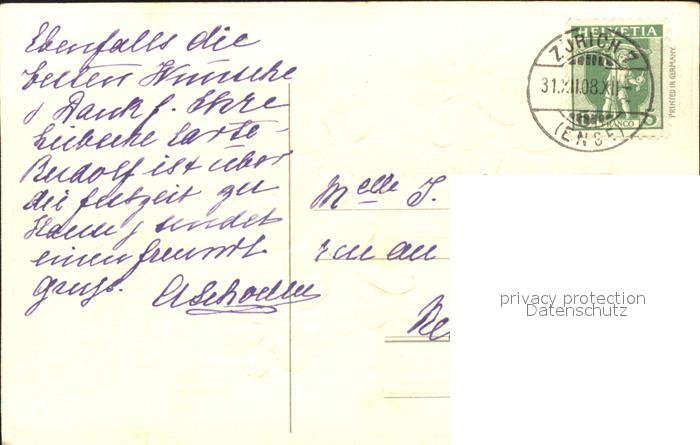 Ebenfalls die
besten Wünsche
& Dank f. Ihre
hübsche Karte -
Rudolf ist über
die Festzeit zu
Hause & sendet
einen freundl.
Gruss.
HELVETIA
ZÜRICH 7
31.XII.08.XII
(ENGE)
FRANCO 5
PRINTED IN GERMANY.
Melle J.
rue au
privacy protection
Datenschutz